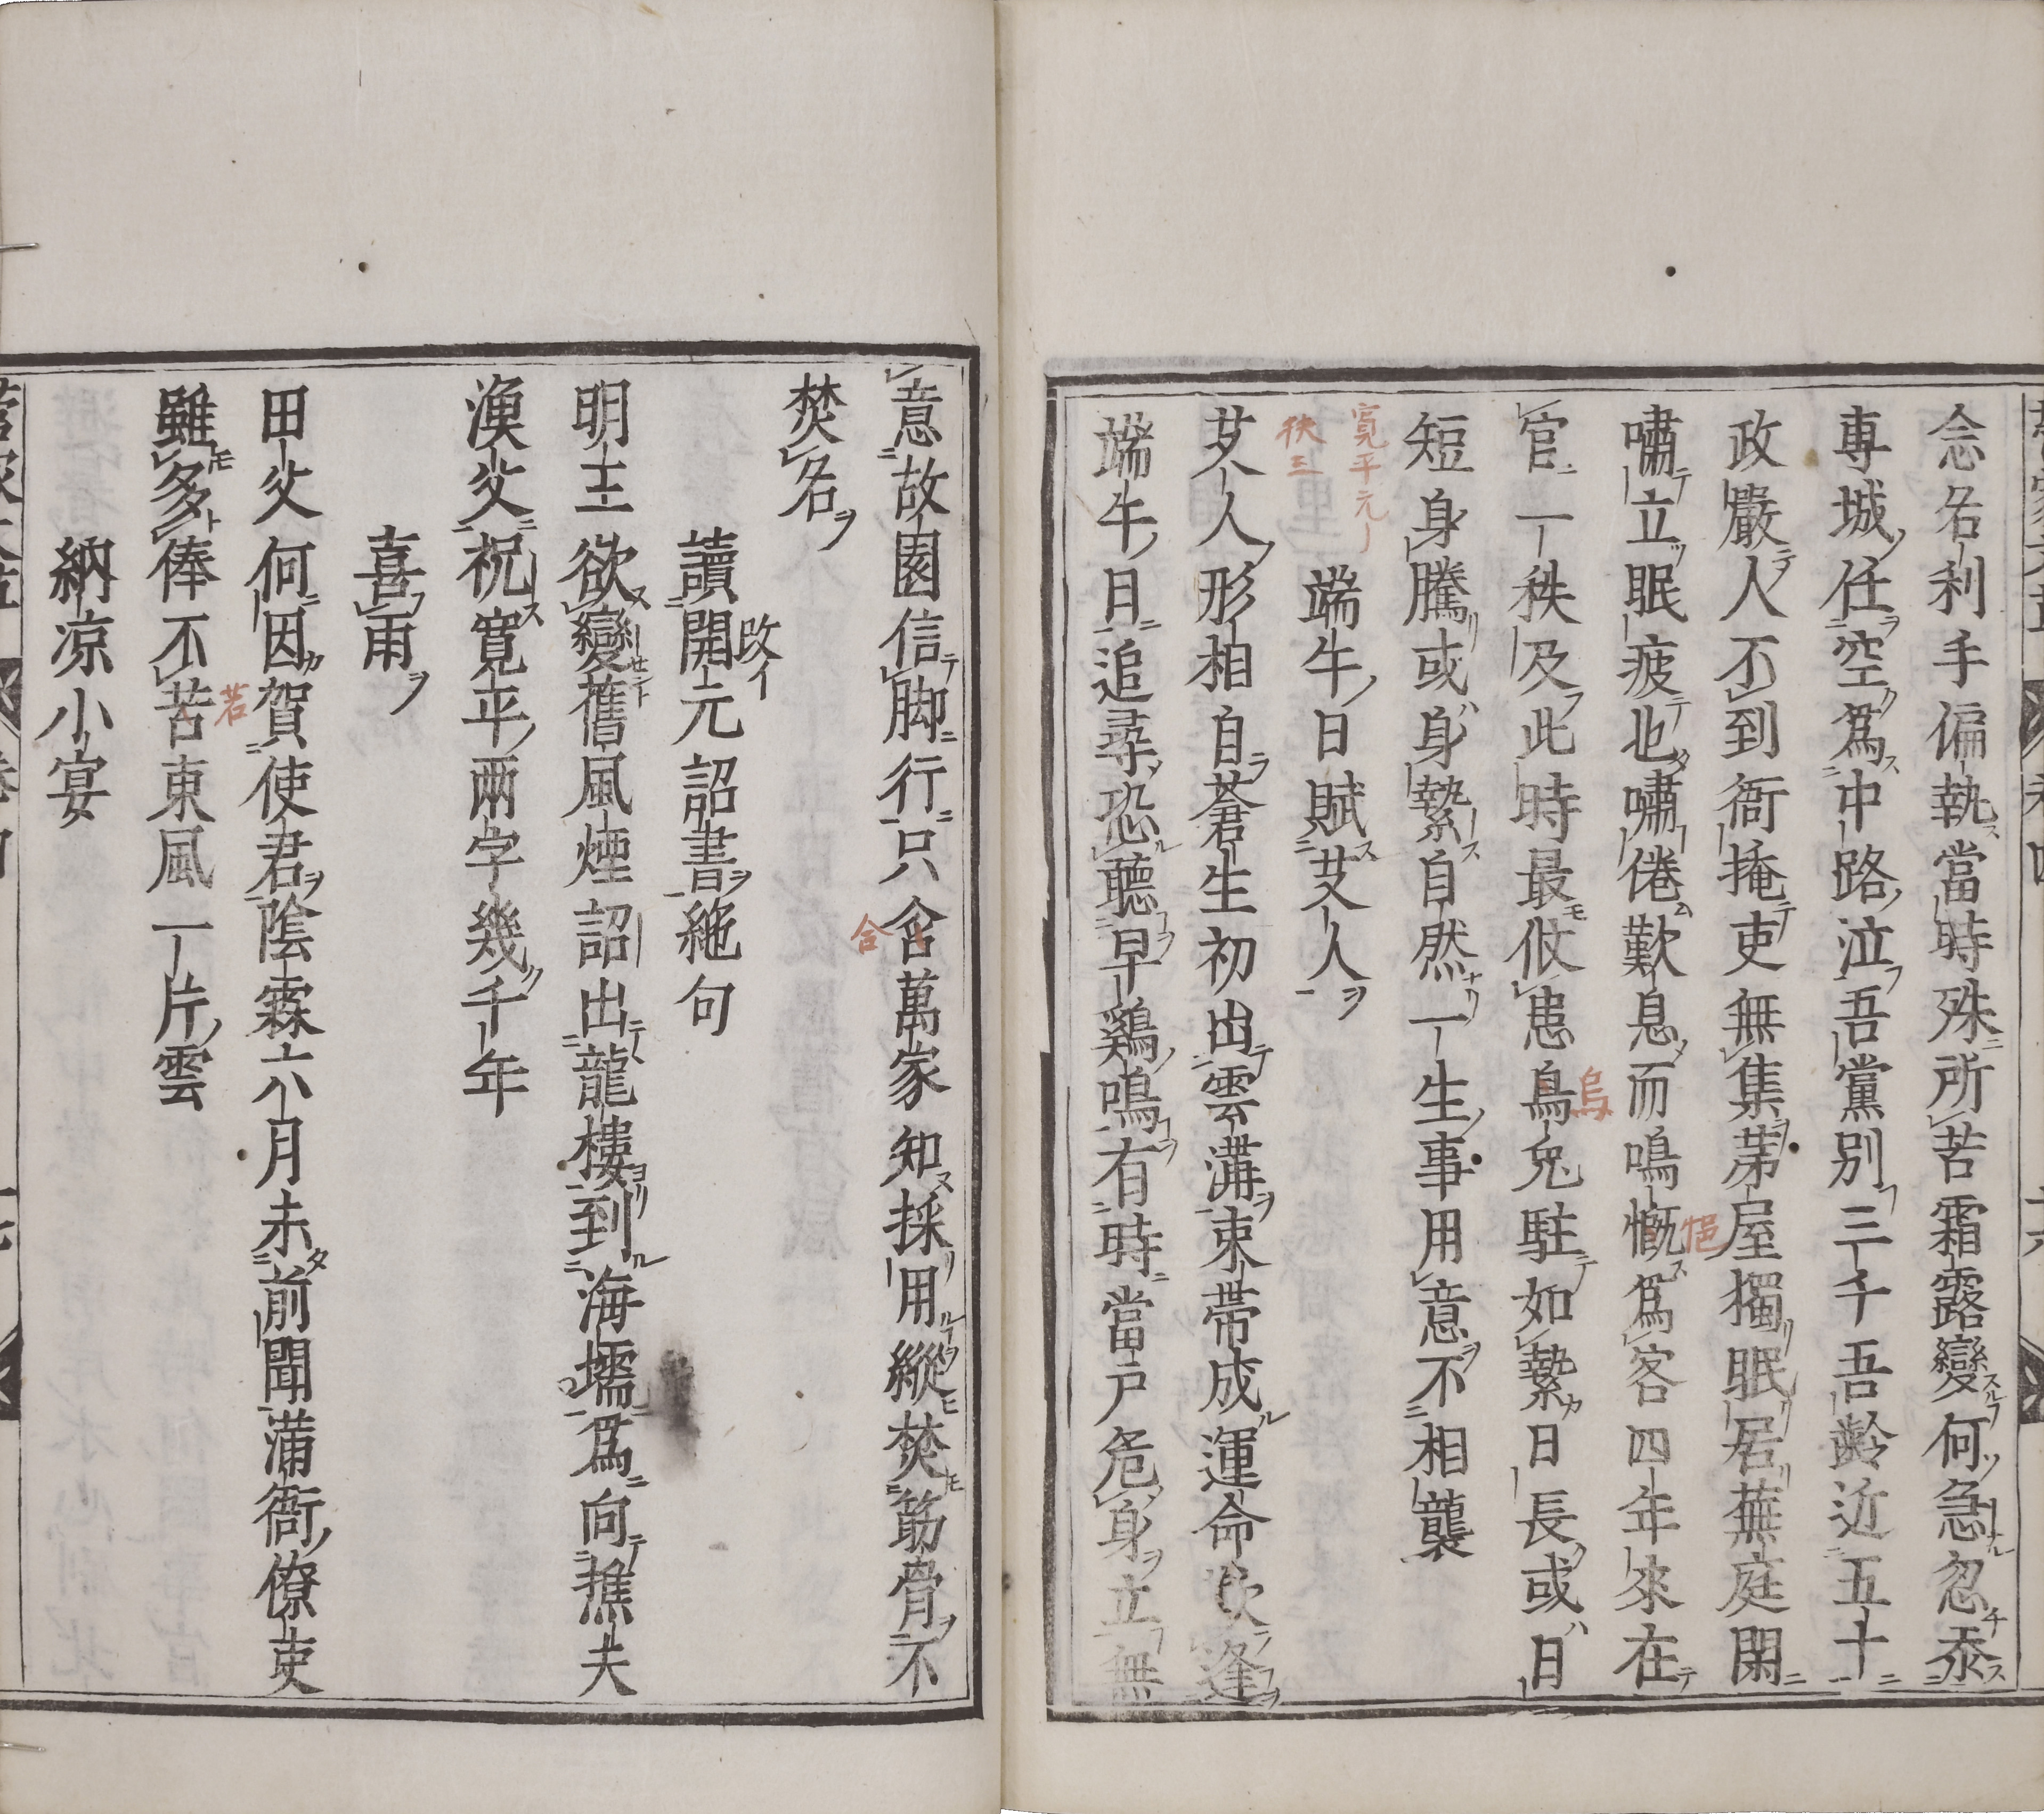 念名利手偏執當時殊所苦霜露變何急忽忝
専城任空爲中路泣吾黨別三千吾齡近五十
政嚴人不到衙掩吏無集茅屋獨眠居蕪庭閑
嘯立眠疲也嘯倦歎息而鳴慨爲客四年來在
悒
官一秩及此時最攸患鳥兔駐如縶日長或日
烏
短身騰或身縶自然一生事用意不相襲
寛平元
秩三
端午日賦艾人
艾人形相自蒼生初出雲溝束帶成運命欤逢
端午日追尋恐聽早鷄鳴有時當戸危身立無
意故園信脚行只含萬家知採用縱焚筋骨不
合
焚名
讀開元詔書絶句
改イ
明王欲變舊風煙詔出龍樓到海壖爲向樵夫
漁父祝寛平兩字幾千年
喜雨
田父何因賀使君陰霖六月未前聞滿衙僚吏
雖多俸不苦東風一片雲
若
納凉小宴